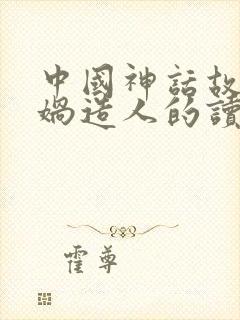 中國神話故
媧造人的讀
霍尊